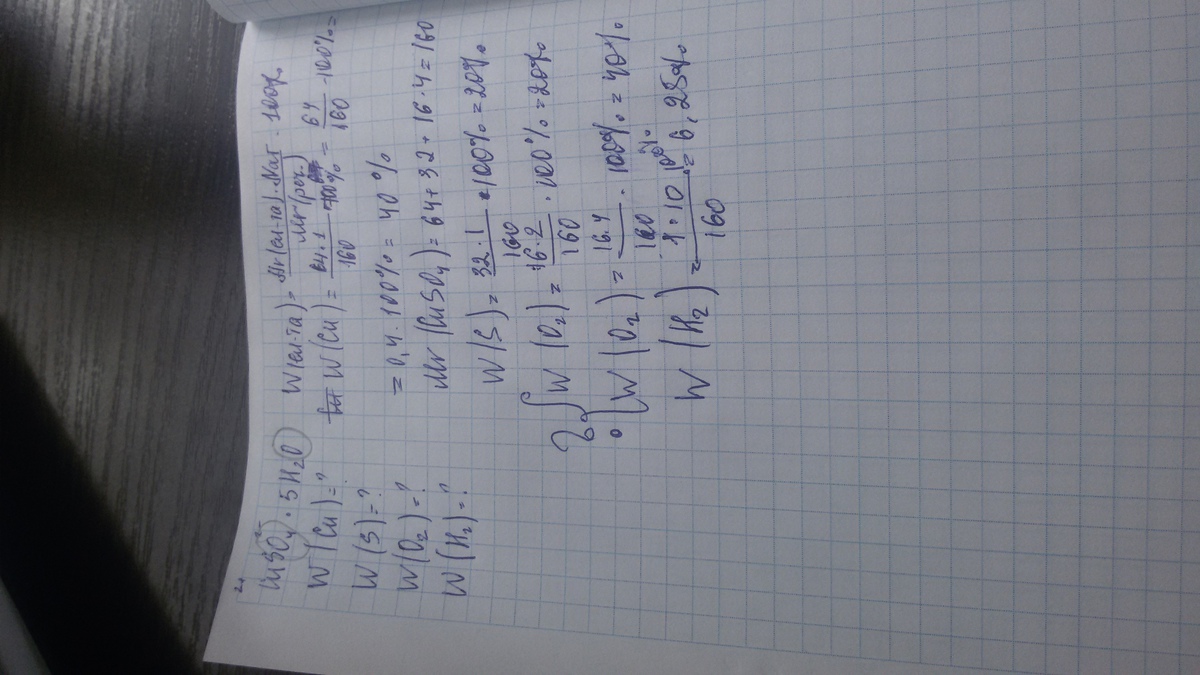 2.
CuSO₄ · 5H₂O
W(Cu)=?
W(S)=?
W(O₂)=?
W(H₂)=?
W(ел-та)= Ar(ел-та)·Nат / Mr(реч.) · 100%
W(Cu) = 64·1 / 160 · 100% = 64 / 160 · 100% =
= 0,4 · 100% = 40%
Mr(CuSO₄) = 64 + 32 + 16·4 = 160
W(S) = 32·1 / 160 · 100% = 20%
W(O₂) = 16·2 / 160 · 100% = 20%
W(O₂) = 16·4 / 160 · 100% = 40%
W(H₂) = 1·10 / 160 100% = 6,25%